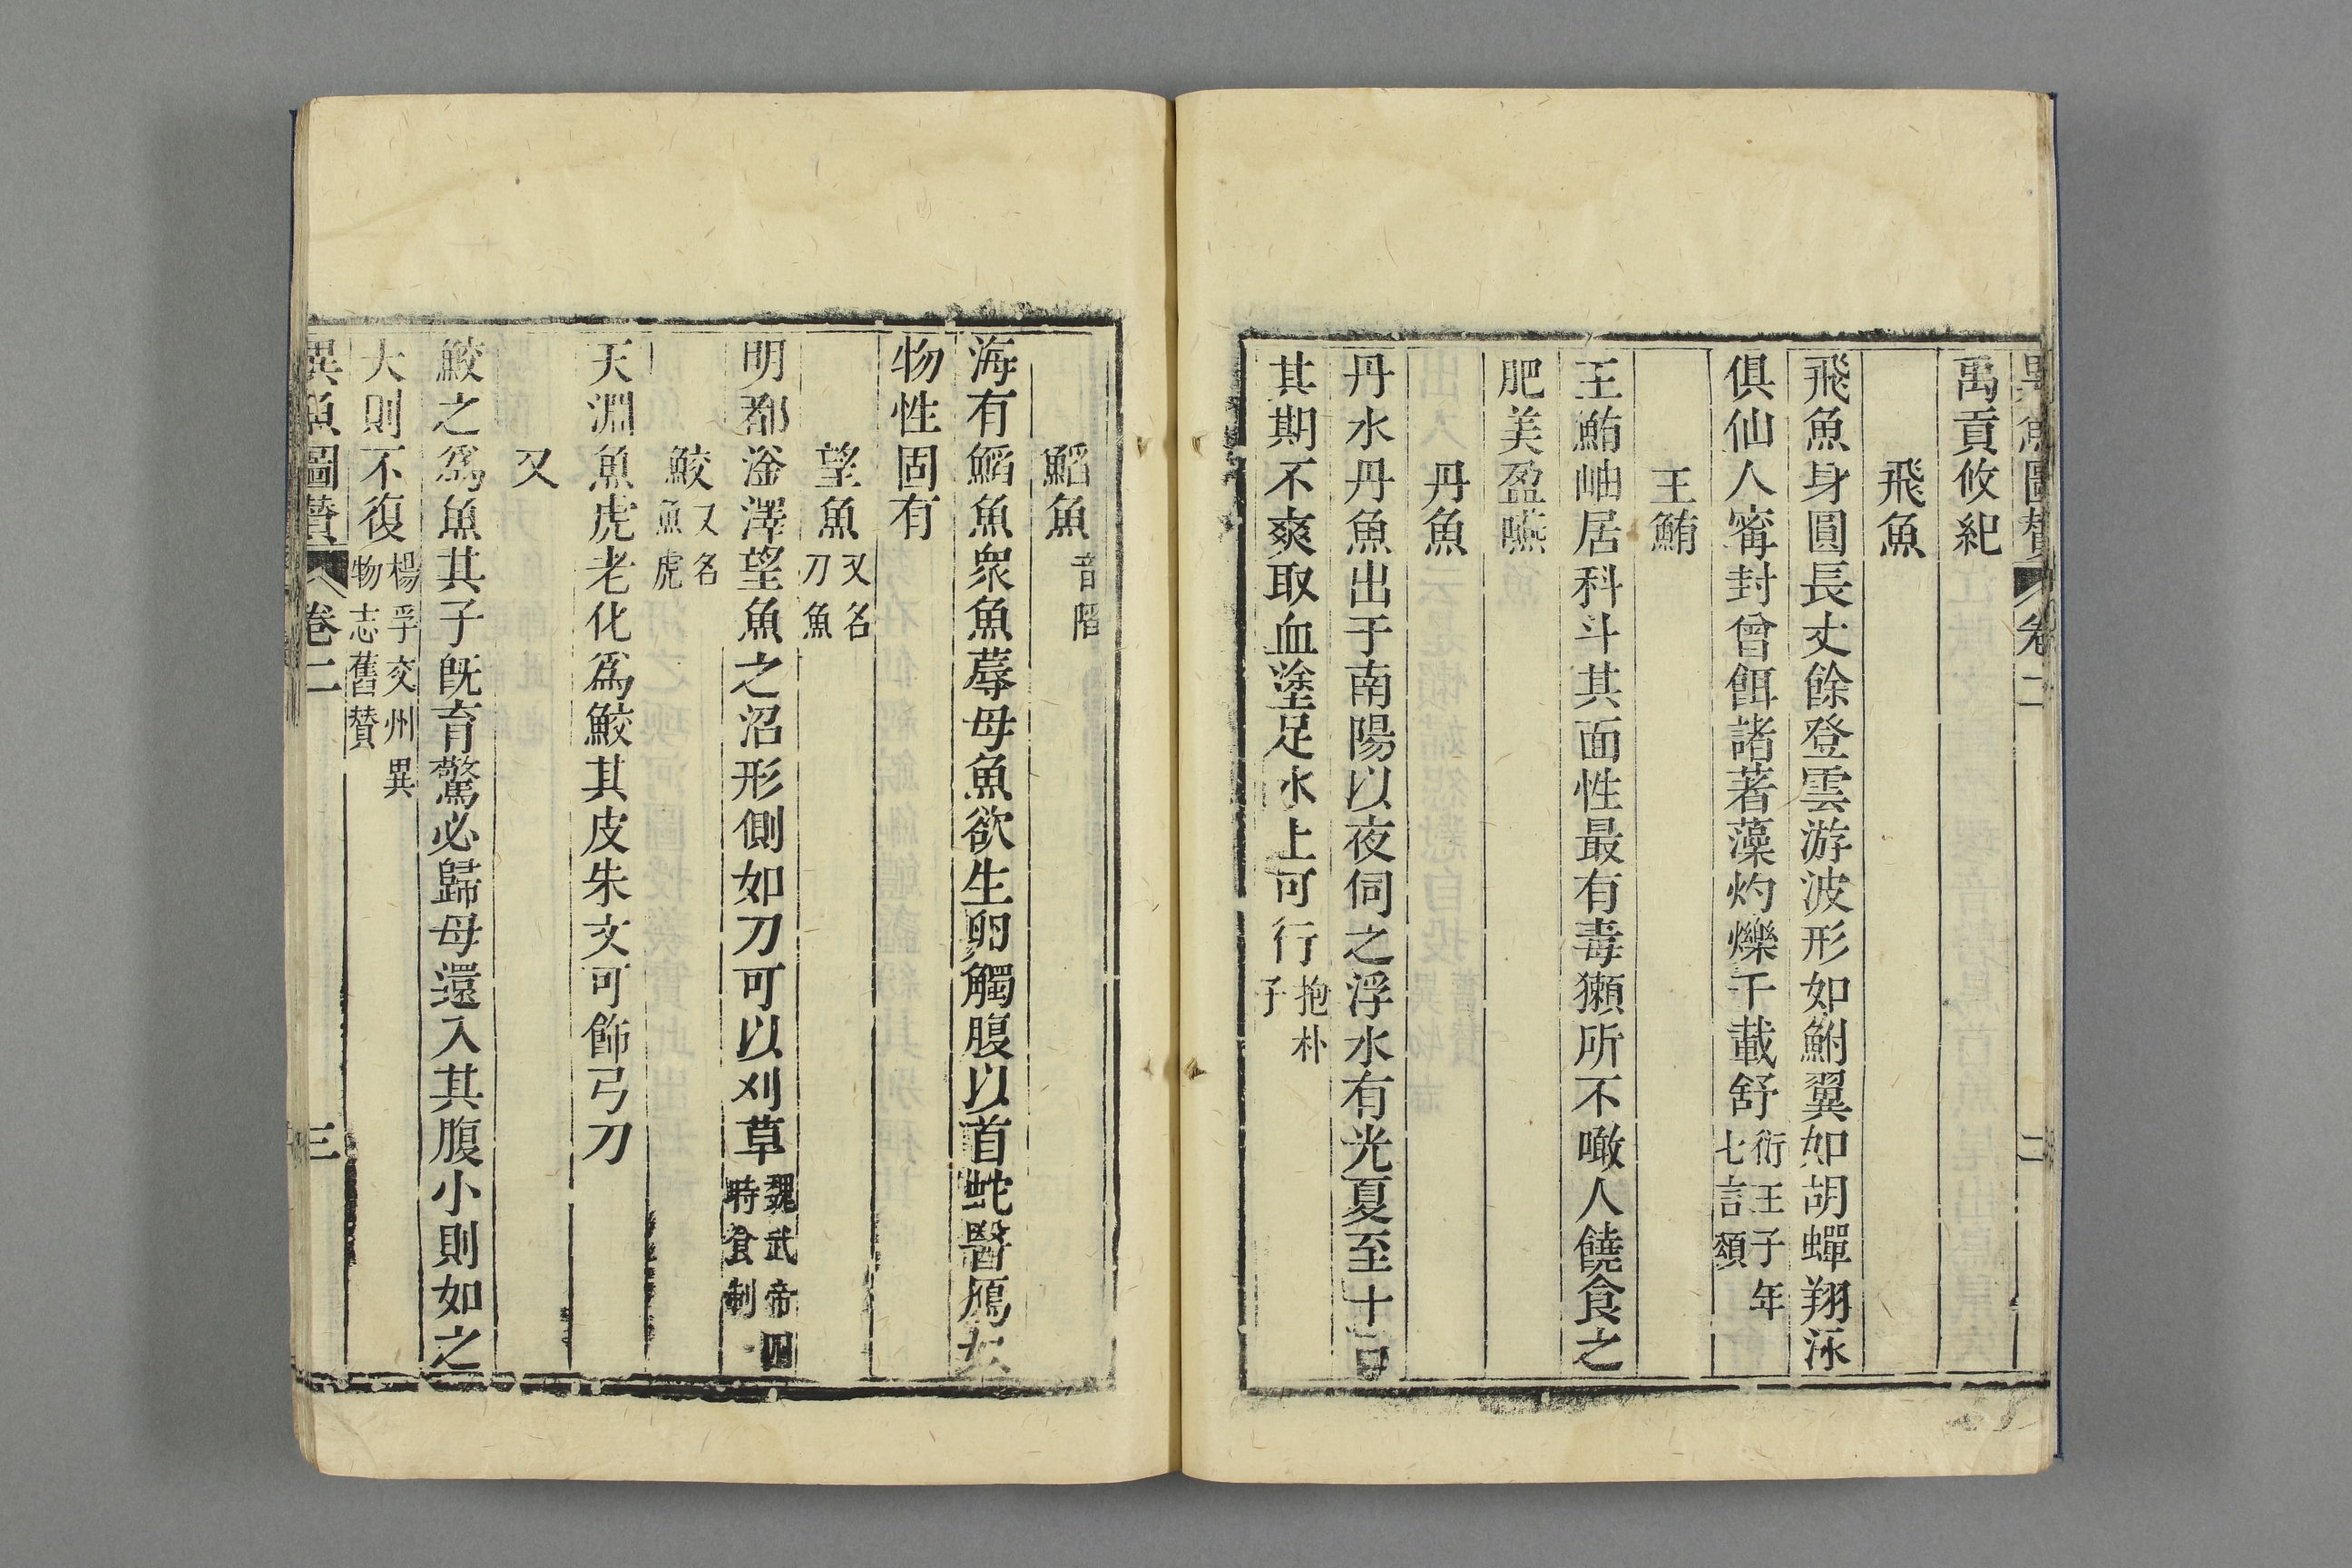 異魚圖贊 卷二 二
禹貢攸紀
飛魚
飛魚身圓長丈餘登雲游波形如鮒翼如胡蟬翔泳
俱仙人甯封曾餌諸著藻灼爍千載舒衍王子年七言頌
王鮪
王鮪岫居科斗其面性最有毒獺所不噉人饒食之
肥美盈嚥
丹魚
丹水丹魚出于南陽以夜伺之浮水有光夏至十日
其期不爽取血塗足水上可行抱朴子
䱤魚音陷
海有䱤魚眾魚蓐母魚欲生卵觸腹以首蛇醫鴈女
物性固有
望魚又名刀魚
明都滏澤望魚之沼形側如刀可以刈草魏武帝四時食制
鮫又名魚虎
天淵魚虎老化為鮫其皮朱文可飾弓刀
又
鮫之為魚其子旣育驚必歸母還入其腹小則如之
大則不復楊孚交州異物志舊贊
異魚圖贊 卷二 三